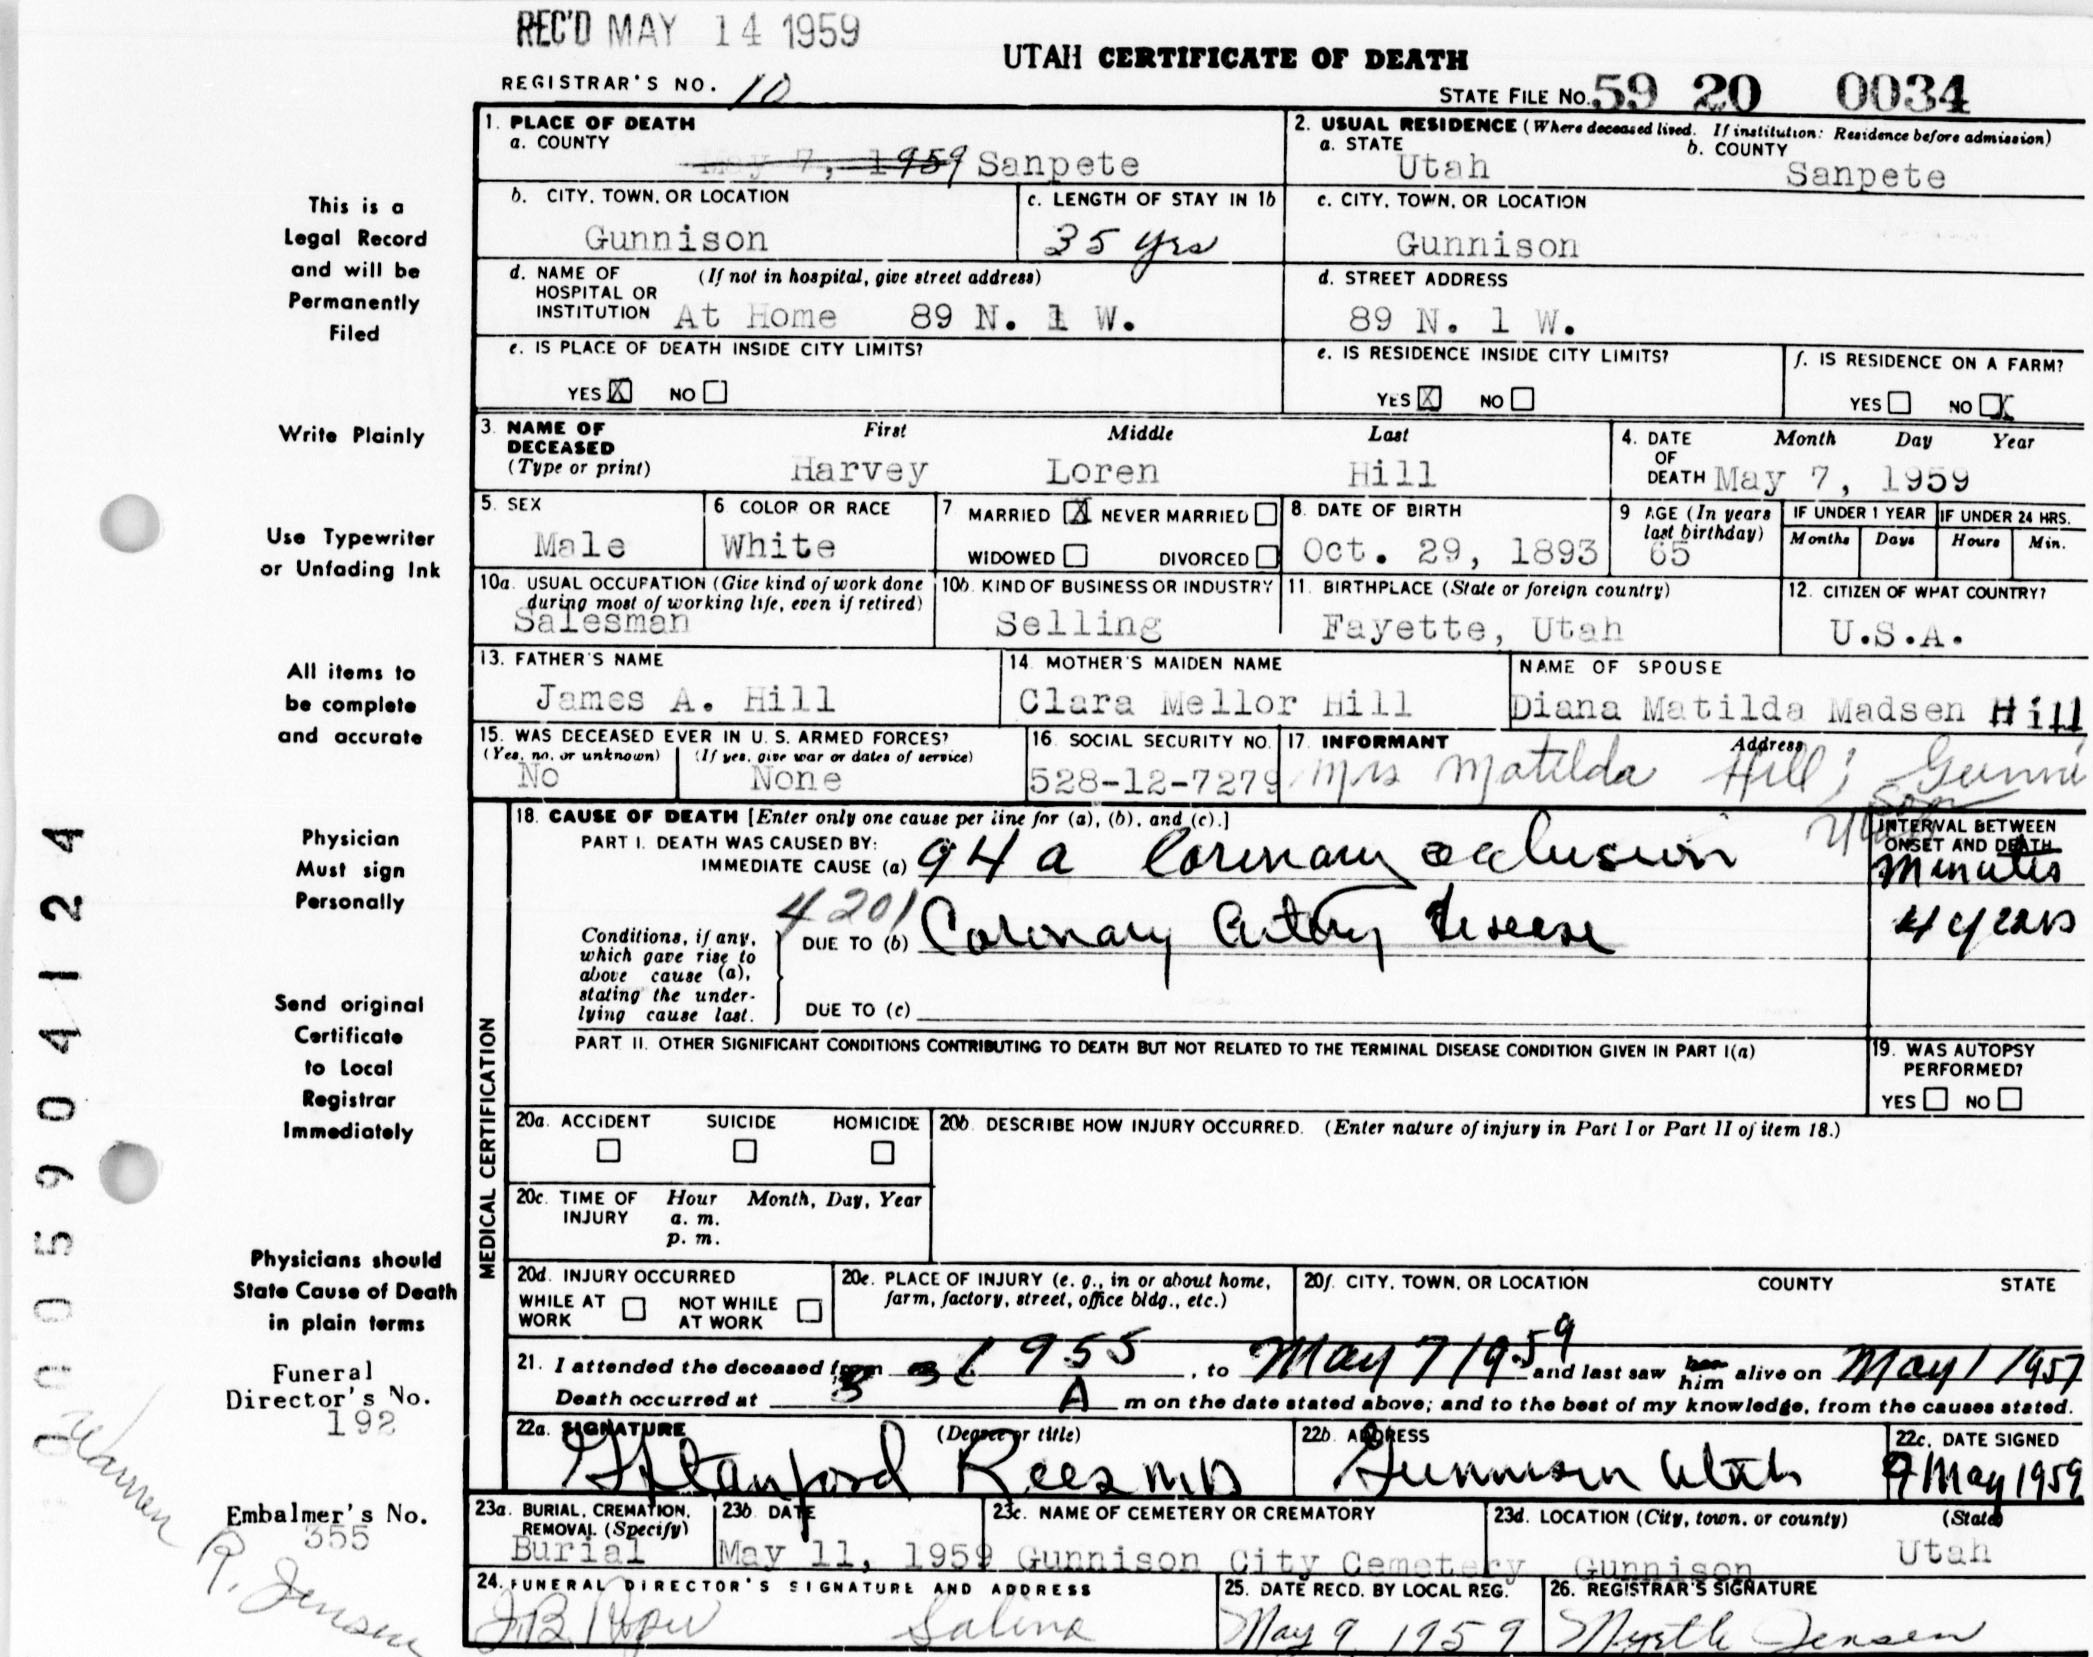 REC'D MAY 14 1959
UTAH CERTIFICATE OF DEATH
REGISTRAR'S NO. 10
STATE FILE NO. 59 20 0034
1. PLACE OF DEATH
a. COUNTY
May 7, 1959 Sanpete
2. USUAL RESIDENCE (Where deceased lived. If institution: Residence before admission)
a. STATE Utah
b. COUNTY Sanpete
b. CITY, TOWN, OR LOCATION
Gunnison
c. LENGTH OF STAY IN 1b
35 yrs
c. CITY, TOWN, OR LOCATION
Gunnison
d. NAME OF HOSPITAL OR INSTITUTION (If not in hospital, give street address)
At Home 89 N. 1 W.
d. STREET ADDRESS
89 N. 1 W.
e. IS PLACE OF DEATH INSIDE CITY LIMITS?
YES X NO
e. IS RESIDENCE INSIDE CITY LIMITS?
YES X NO
f. IS RESIDENCE ON A FARM?
YES NO X
3. NAME OF DECEASED (Type or print)
First Middle Last
Harvey Loren Hill
4. DATE OF DEATH
Month Day Year
May 7, 1959
5. SEX
Male
6 COLOR OR RACE
White
7 MARRIED X NEVER MARRIED
WIDOWED DIVORCED
8. DATE OF BIRTH
Oct. 29, 1893
9 AGE (In years last birthday)
65
IF UNDER 1 YEAR
Months Days
IF UNDER 24 HRS.
Hours Min.
10a. USUAL OCCUPATION (Give kind of work done during most of working life, even if retired)
Salesman
10b. KIND OF BUSINESS OR INDUSTRY
Selling
11. BIRTHPLACE (State or foreign country)
Fayette, Utah
12. CITIZEN OF WHAT COUNTRY?
U.S.A.
13. FATHER'S NAME
James A. Hill
14. MOTHER'S MAIDEN NAME
Clara Mellor Hill
NAME OF SPOUSE
Diana Matilda Madsen Hill
15. WAS DECEASED EVER IN U. S. ARMED FORCES?
(Yes, no, or unknown) (If yes, give war or dates of service)
No None
16. SOCIAL SECURITY NO.
528-12-7279
17. INFORMANT Address
Mrs Matilda Hill, Gunnison
Utah
18. CAUSE OF DEATH [Enter only one cause per line for (a), (b), and (c).]
PART I. DEATH WAS CAUSED BY:
IMMEDIATE CAUSE (a) 94 a Coronary occlusion
INTERVAL BETWEEN ONSET AND DEATH
Minutes
4201
Conditions, if any, which gave rise to above cause (a), stating the underlying cause last.
DUE TO (b) Coronary Artery Disease
4 years
DUE TO (c)
PART II. OTHER SIGNIFICANT CONDITIONS CONTRIBUTING TO DEATH BUT NOT RELATED TO THE TERMINAL DISEASE CONDITION GIVEN IN PART I(a)
19. WAS AUTOPSY PERFORMED?
YES NO
MEDICAL CERTIFICATION
20a. ACCIDENT SUICIDE HOMICIDE
20b. DESCRIBE HOW INJURY OCCURRED. (Enter nature of injury in Part I or Part II of item 18.)
20c. TIME OF INJURY Hour Month, Day, Year
a. m.
p. m.
20d. INJURY OCCURRED
WHILE AT WORK NOT WHILE AT WORK
20e. PLACE OF INJURY (e. g., in or about home, farm, factory, street, office bldg., etc.)
20f. CITY, TOWN, OR LOCATION COUNTY STATE
21. I attended the deceased from 1955, to May 7 1959 and last saw her him alive on May 1 1957
Death occurred at 3 A m on the date stated above; and to the best of my knowledge, from the causes stated.
22a. SIGNATURE (Degree or title)
G Stanford Rees MD
22b. ADDRESS
Gunnison Utah
22c. DATE SIGNED
9 May 1959
23a. BURIAL, CREMATION, REMOVAL (Specify)
Burial
23b. DATE
May 11, 1959
23c. NAME OF CEMETERY OR CREMATORY
Gunnison City Cemetery
23d. LOCATION (City, town, or county) (State)
Gunnison Utah
24. FUNERAL DIRECTOR'S SIGNATURE AND ADDRESS
Salina
25. DATE RECD. BY LOCAL REG.
May 9 1959
26. REGISTRAR'S SIGNATURE
Myrtle Jensen
This is a
Legal Record
and will be
Permanently
Filed
Write Plainly
Use Typewriter
or Unfading Ink
All items to
be complete
and accurate
Physician
Must sign
Personally
Send original
Certificate
to Local
Registrar
Immediately
Physicians should
State Cause of Death
in plain terms
Funeral
Director's No.
192
Embalmer's No.
355
Warren R. Jensen
005904124